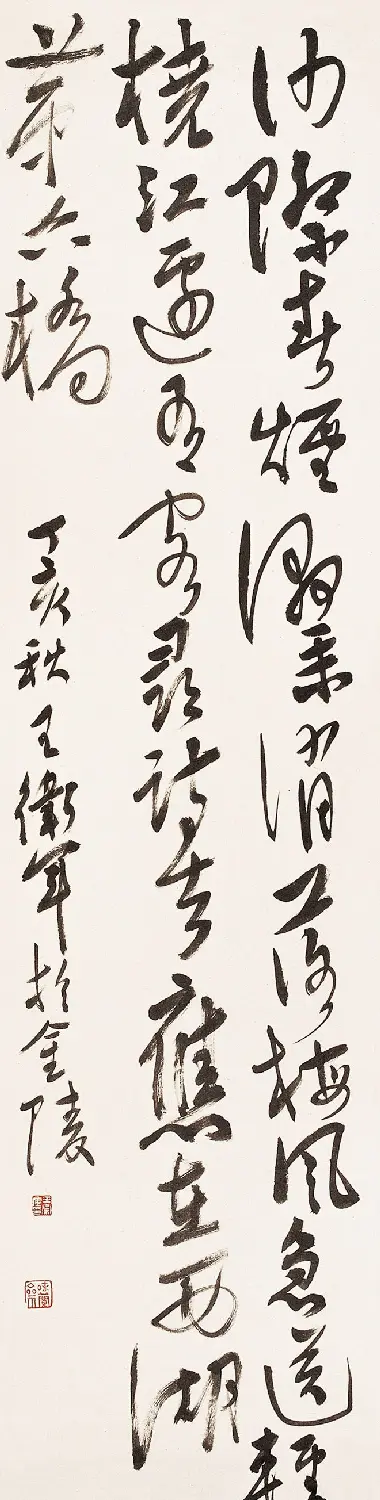 沙際春煙濕未消落梅風急送輕
橈江邊有客尋詩去應在西湖
第六橋
丁亥秋王衛軍於金陵